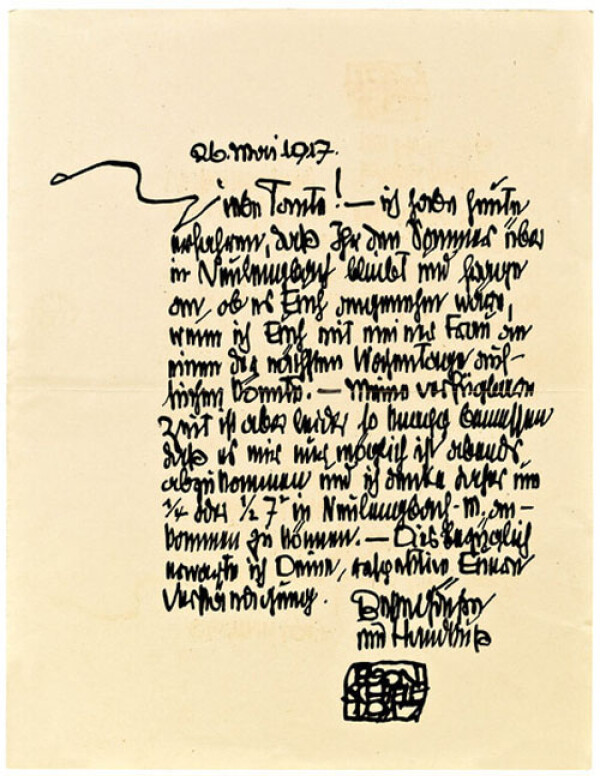 26. Mai 1917.
Liebe Tante! — ich habe heute
erfahren, daß Ihr den Sommer über
in Neulengbach bleibt und frage
an, ob es Euch angenehm wäre,
wenn ich Euch mit meiner Frau an
einem der nächsten Wochentage auf-
suchen könnte. — Meine verfügbare
Zeit ist aber leider so knapp bemessen
daß es mir nur möglich ist abends
abzukommen und ich denke daher um
¾ oder ½ 7 in Neulengbach-M. an-
kommen zu können. — Diesbezüglich
erwarte ich Deine, respektive Euere
Verständigung.
und Handkuß
EGON
SCHIELE
1917